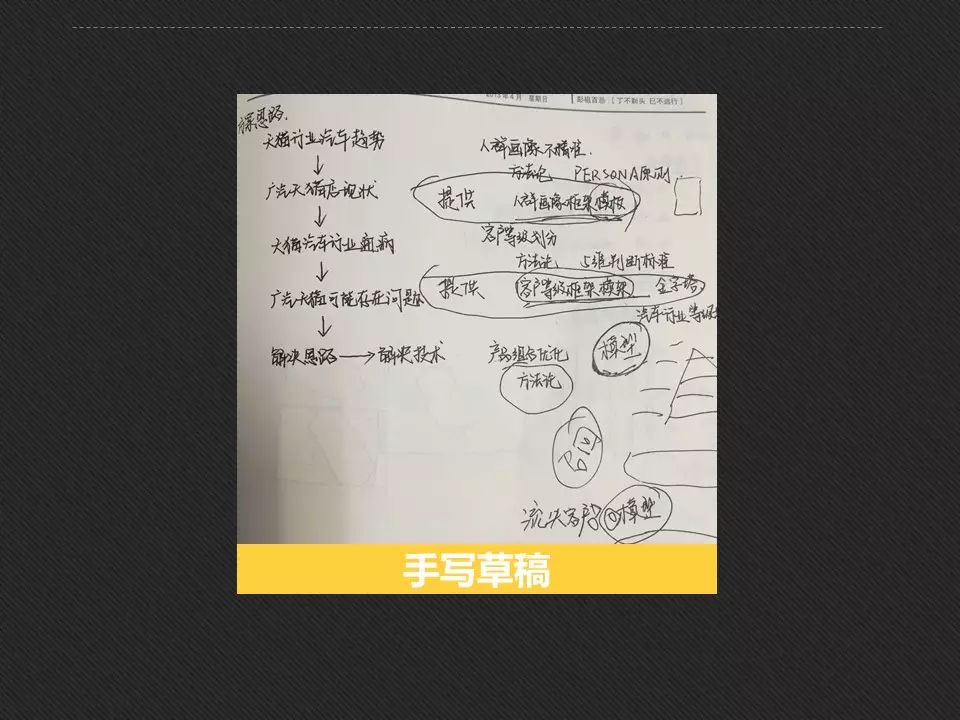 2013年4月 星期日
彭祖百忌 [丁不剃头 巳不远行]
方案思路.
天猫行业汽车趋势
↓
广汽天猫店现状
↓
天猫汽车行业通病
↓
广汽天猫可能存在问题
↓
解决思路→解决技术
人群画像不精准.
方法论 PERSONA原则
提供 人群画像框架模板
客户等级划分
方法论 5维判断标准
提供 客户等级框架模架 金字塔
汽车行业等级
模型
产品组合优化
方法论
流失客户 模型
手写草稿